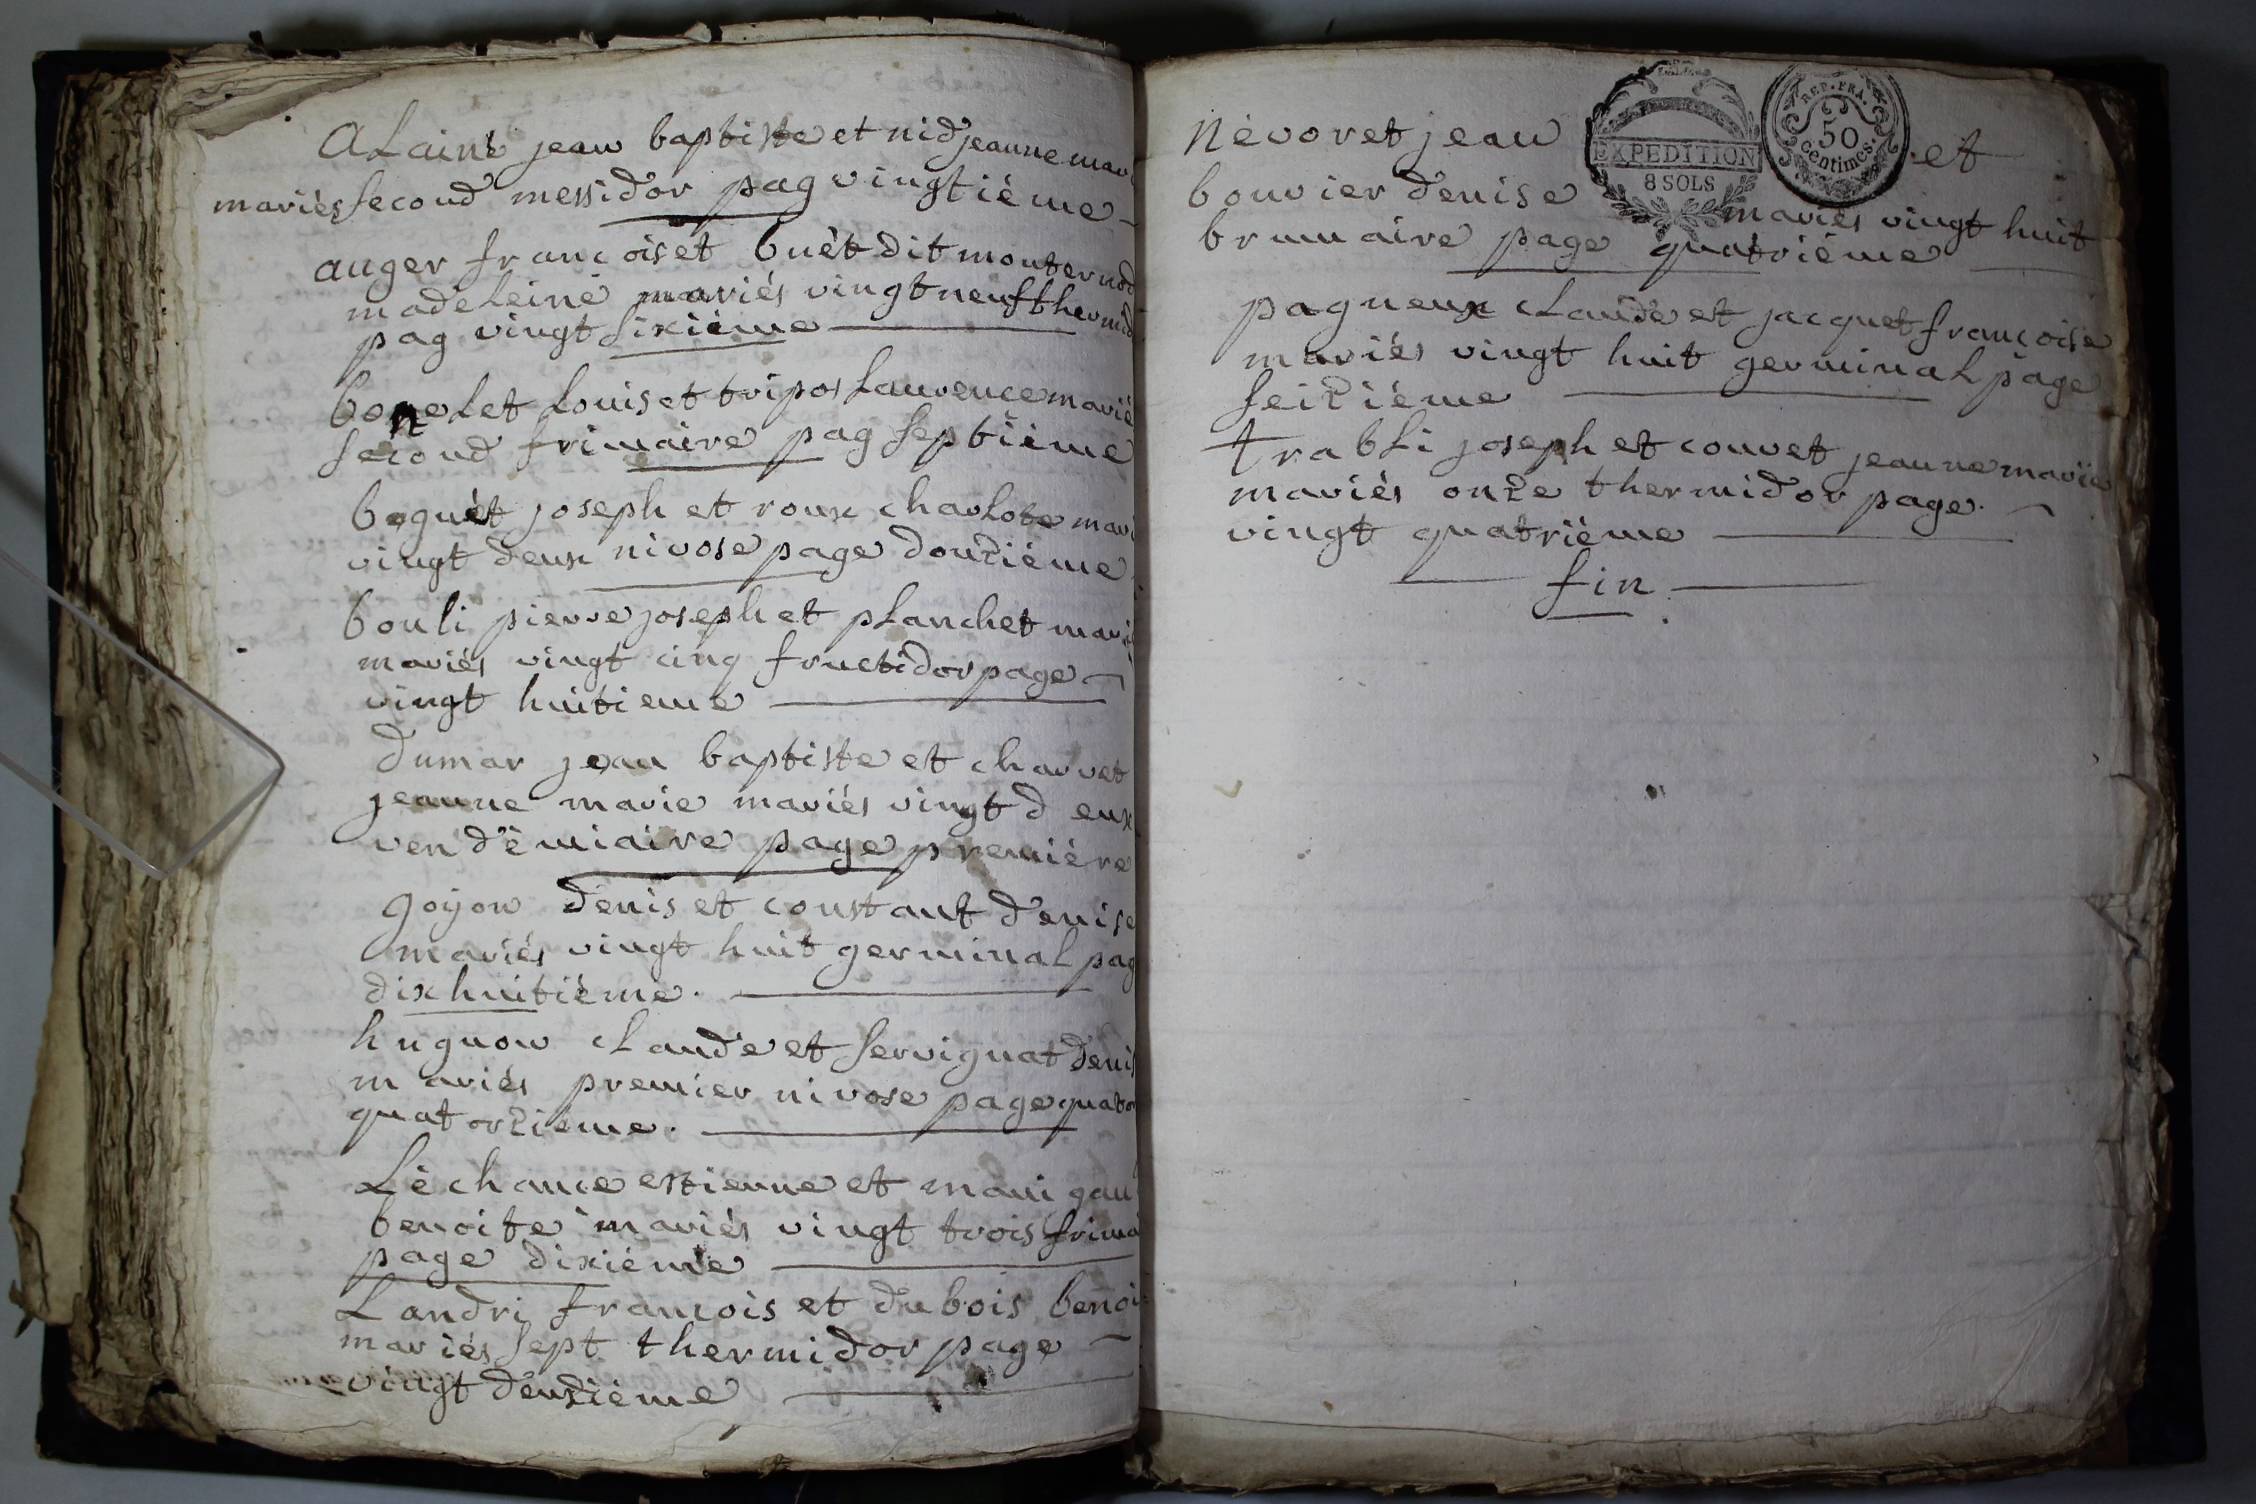 alainé jean baptiste et nid jeanne mari
mariés second messidor pag vingtiéme
auger francois et buèt dit monternod
madeleine mariés vingt neuf thermid
pag vingt sixiéme
bonelet Louis et tripos Laurence marié
second frimaire pag septiéme
boguèt joseph et roux charlote mari
vingt deux nivose page douziéme
bouli pierre joseph et planchet mari
mariés vingt cinq fructidor page
vingt huitieme
dumar jean baptiste et charvet
jeanne marie mariés vingt d eux
vendèmiaire page premiére
goyon denis et constant denise
mariés vingt huit germinal pag
dixhuitiéme.
hugnon claude et servignat denis
mariés premier nivose page quator
quatorziéme.
Lèchance estienne et mauigau
benoite mariés vingt trois frima
page dixiéme
Landri francois et dubois benoi
mariés sept thermidor page
vingt deuxiéme
Nèvoret jean et
EXPEDITION
8 SOLS
REP. FRA.
50
centimes.
bouvier denise mariés vingt huit
brumaire page quatriéme
pagneux claude et jacquet françoise
mariés vingt huit germinal page
seiziéme
trabli joseph et couvet jeanne marie
mariés onze thermidor page.
vingt quatriéme
fin